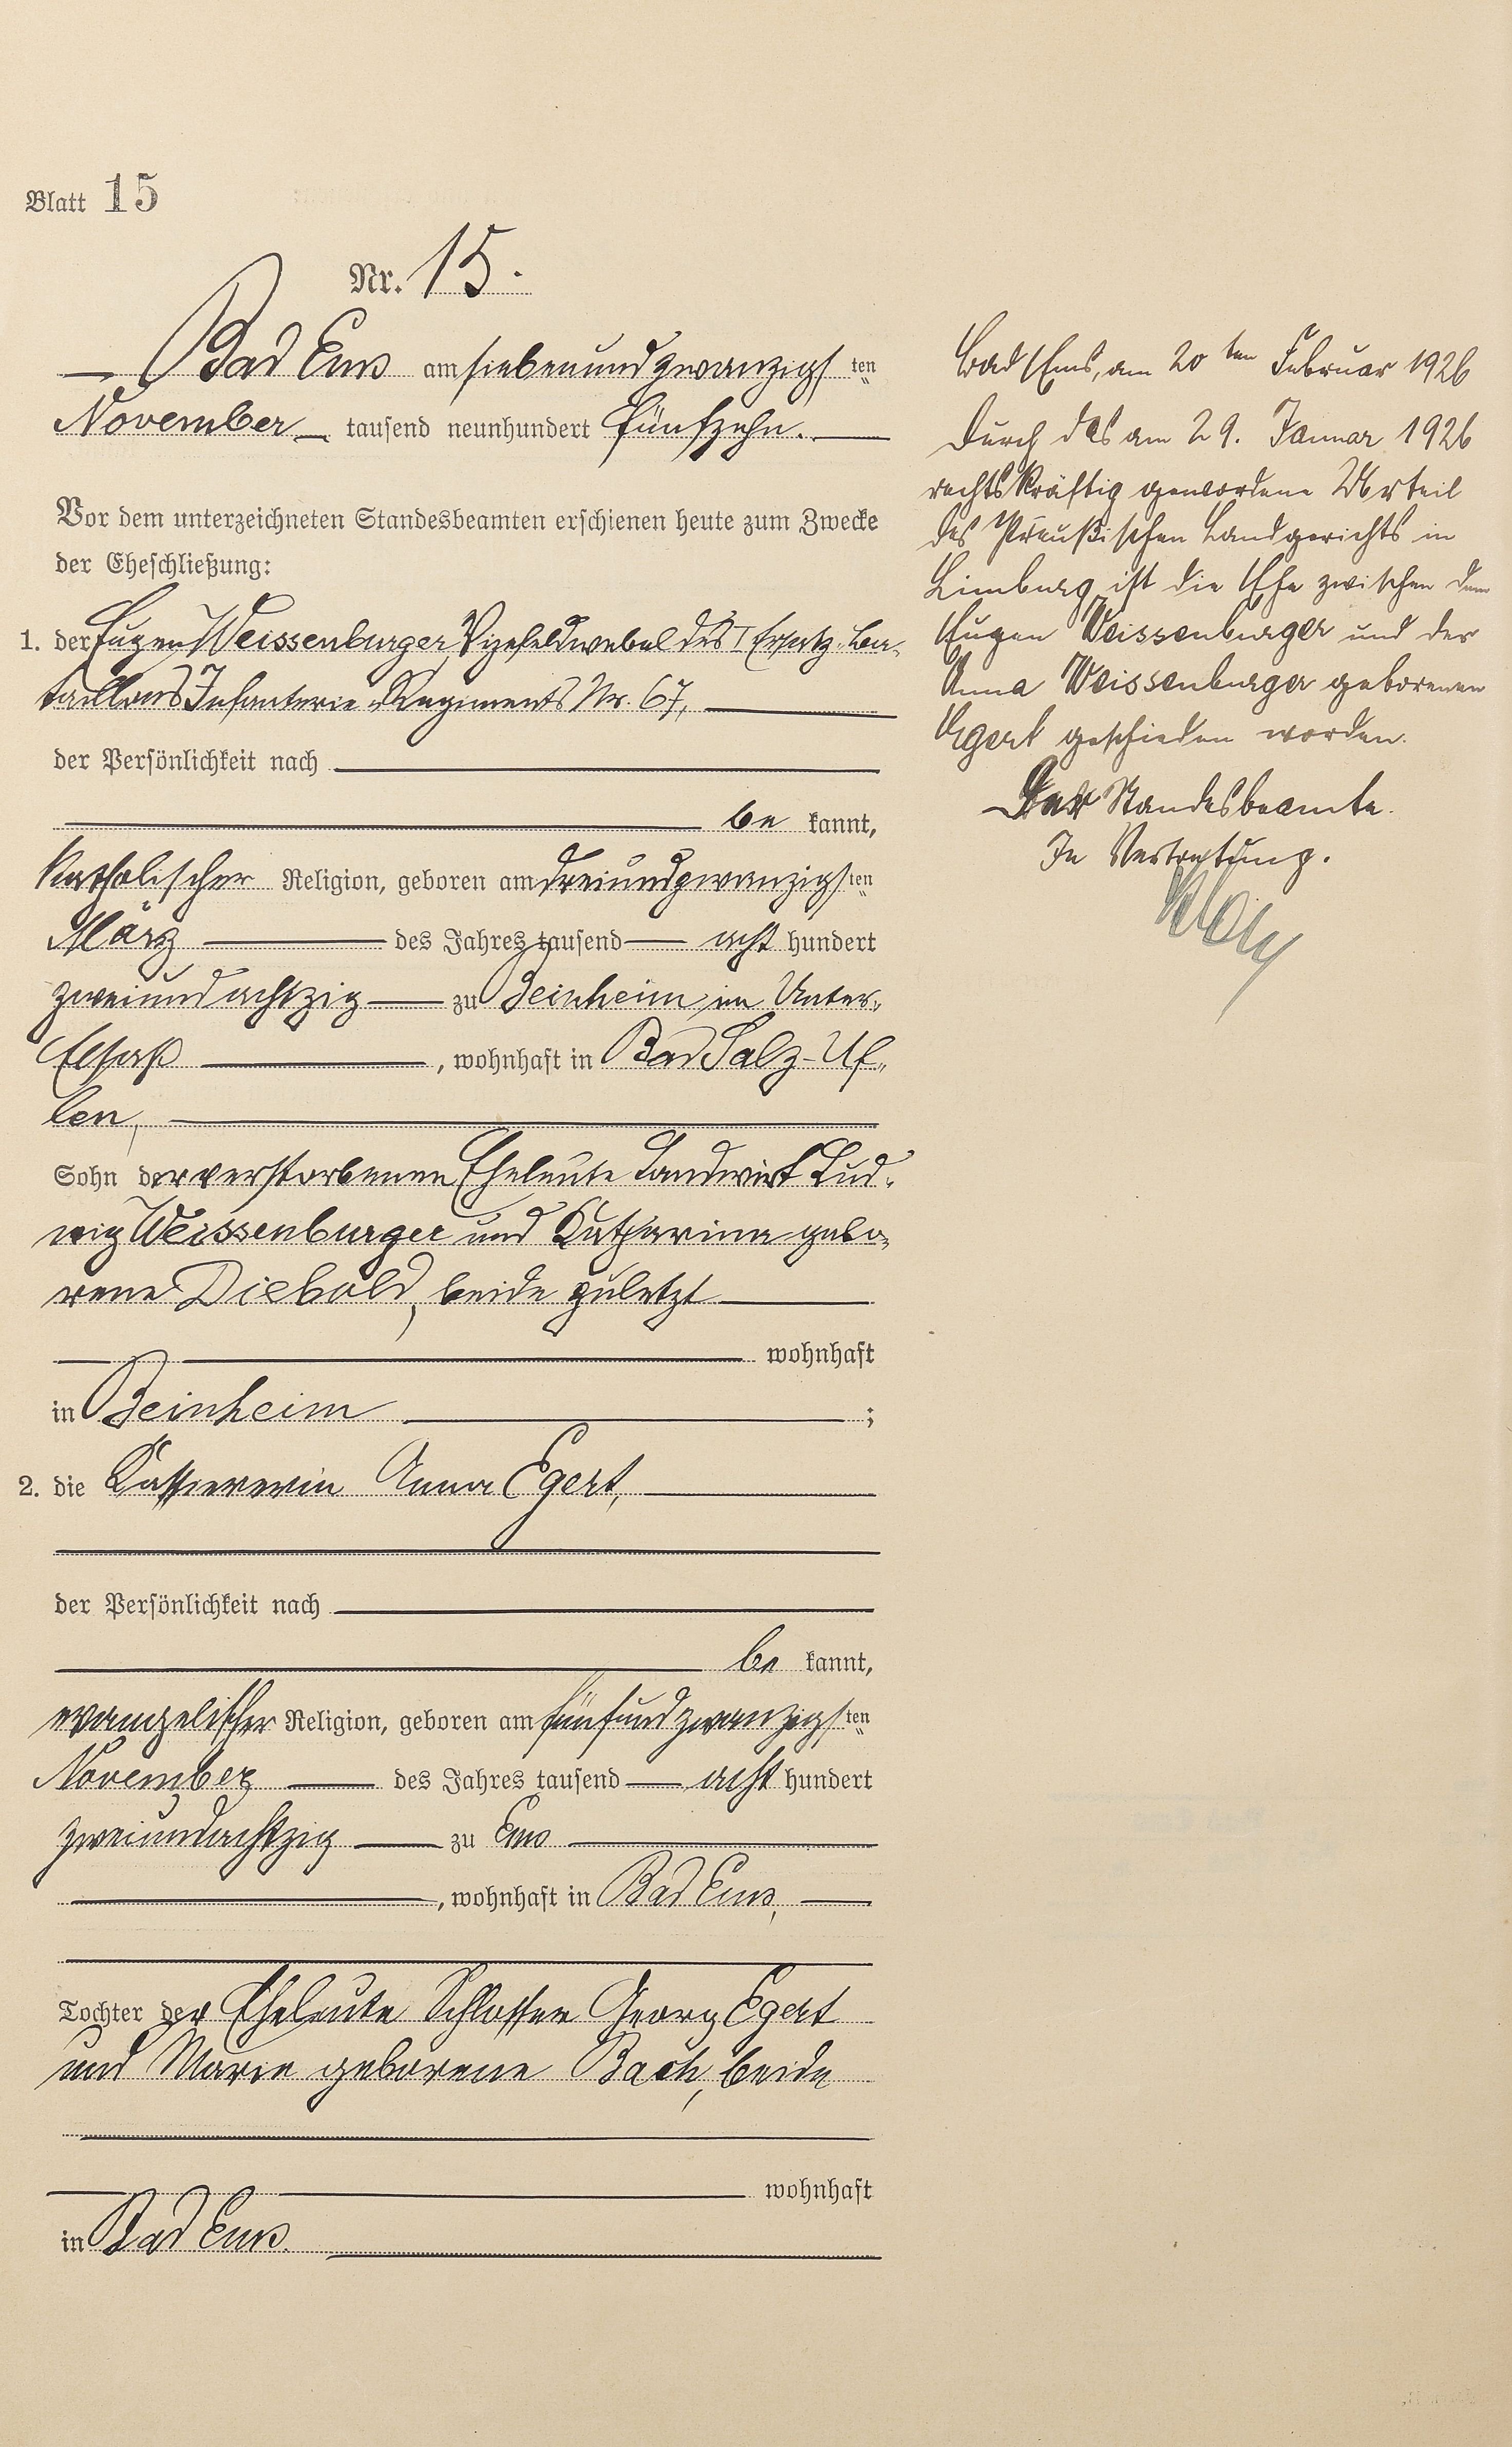 Blatt 15
Nr. 15.
Bad Ems am siebenundzwanzigsten
November tausend neunhundert fünfzehn.
Vor dem unterzeichneten Standesbeamten erschienen heute zum Zwecke
der Eheschließung:
1. der Eugen Weissenburger, Vizefeldwebel des I Ersatz-Ba-
taillons Infanterie-Regiments Nr. 67,
der Persönlichkeit nach
be kannt,
katholischer Religion, geboren am dreiundzwanzigsten
März des Jahres tausend acht hundert
zweiundachtzig zu Beinheim im Unter-
Elsaß, wohnhaft in Bad Salz-Uf-
len,
Sohn der verstorbenen Eheleute Landwirt Lud-
wig Weissenburger und Katharina gebo-
rene Diebold, beide zuletzt
wohnhaft
in Beinheim;
2. die Kassiererin Anna Egert,
der Persönlichkeit nach
be kannt,
evangelischer Religion, geboren am fünfundzwanzigsten
November des Jahres tausend acht hundert
zweiundachtzig zu Ems
, wohnhaft in Bad Ems,
Tochter der Eheleute Schlosser Georg Egert
und Marie geborene Bach, beide
wohnhaft
in Bad Ems.
Bad Ems, am 20ten Februar 1926
Durch das am 29. Januar 1926
rechtskräftig gewordene Urteil
des Preußischen Landgerichts in
Limburg ist die Ehe zwischen dem
Eugen Weissenburger und der
Anna Weissenburger geborenen
Egert geschieden worden.
Der Standesbeamte.
In Vertretung.